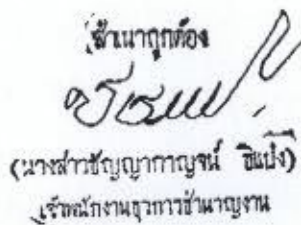 สำเนาถูกต้อง
(นางสาวธัญญากาญจน์ อิแบ๋ง)
เจ้าพนักงานธุรการชำนาญงาน